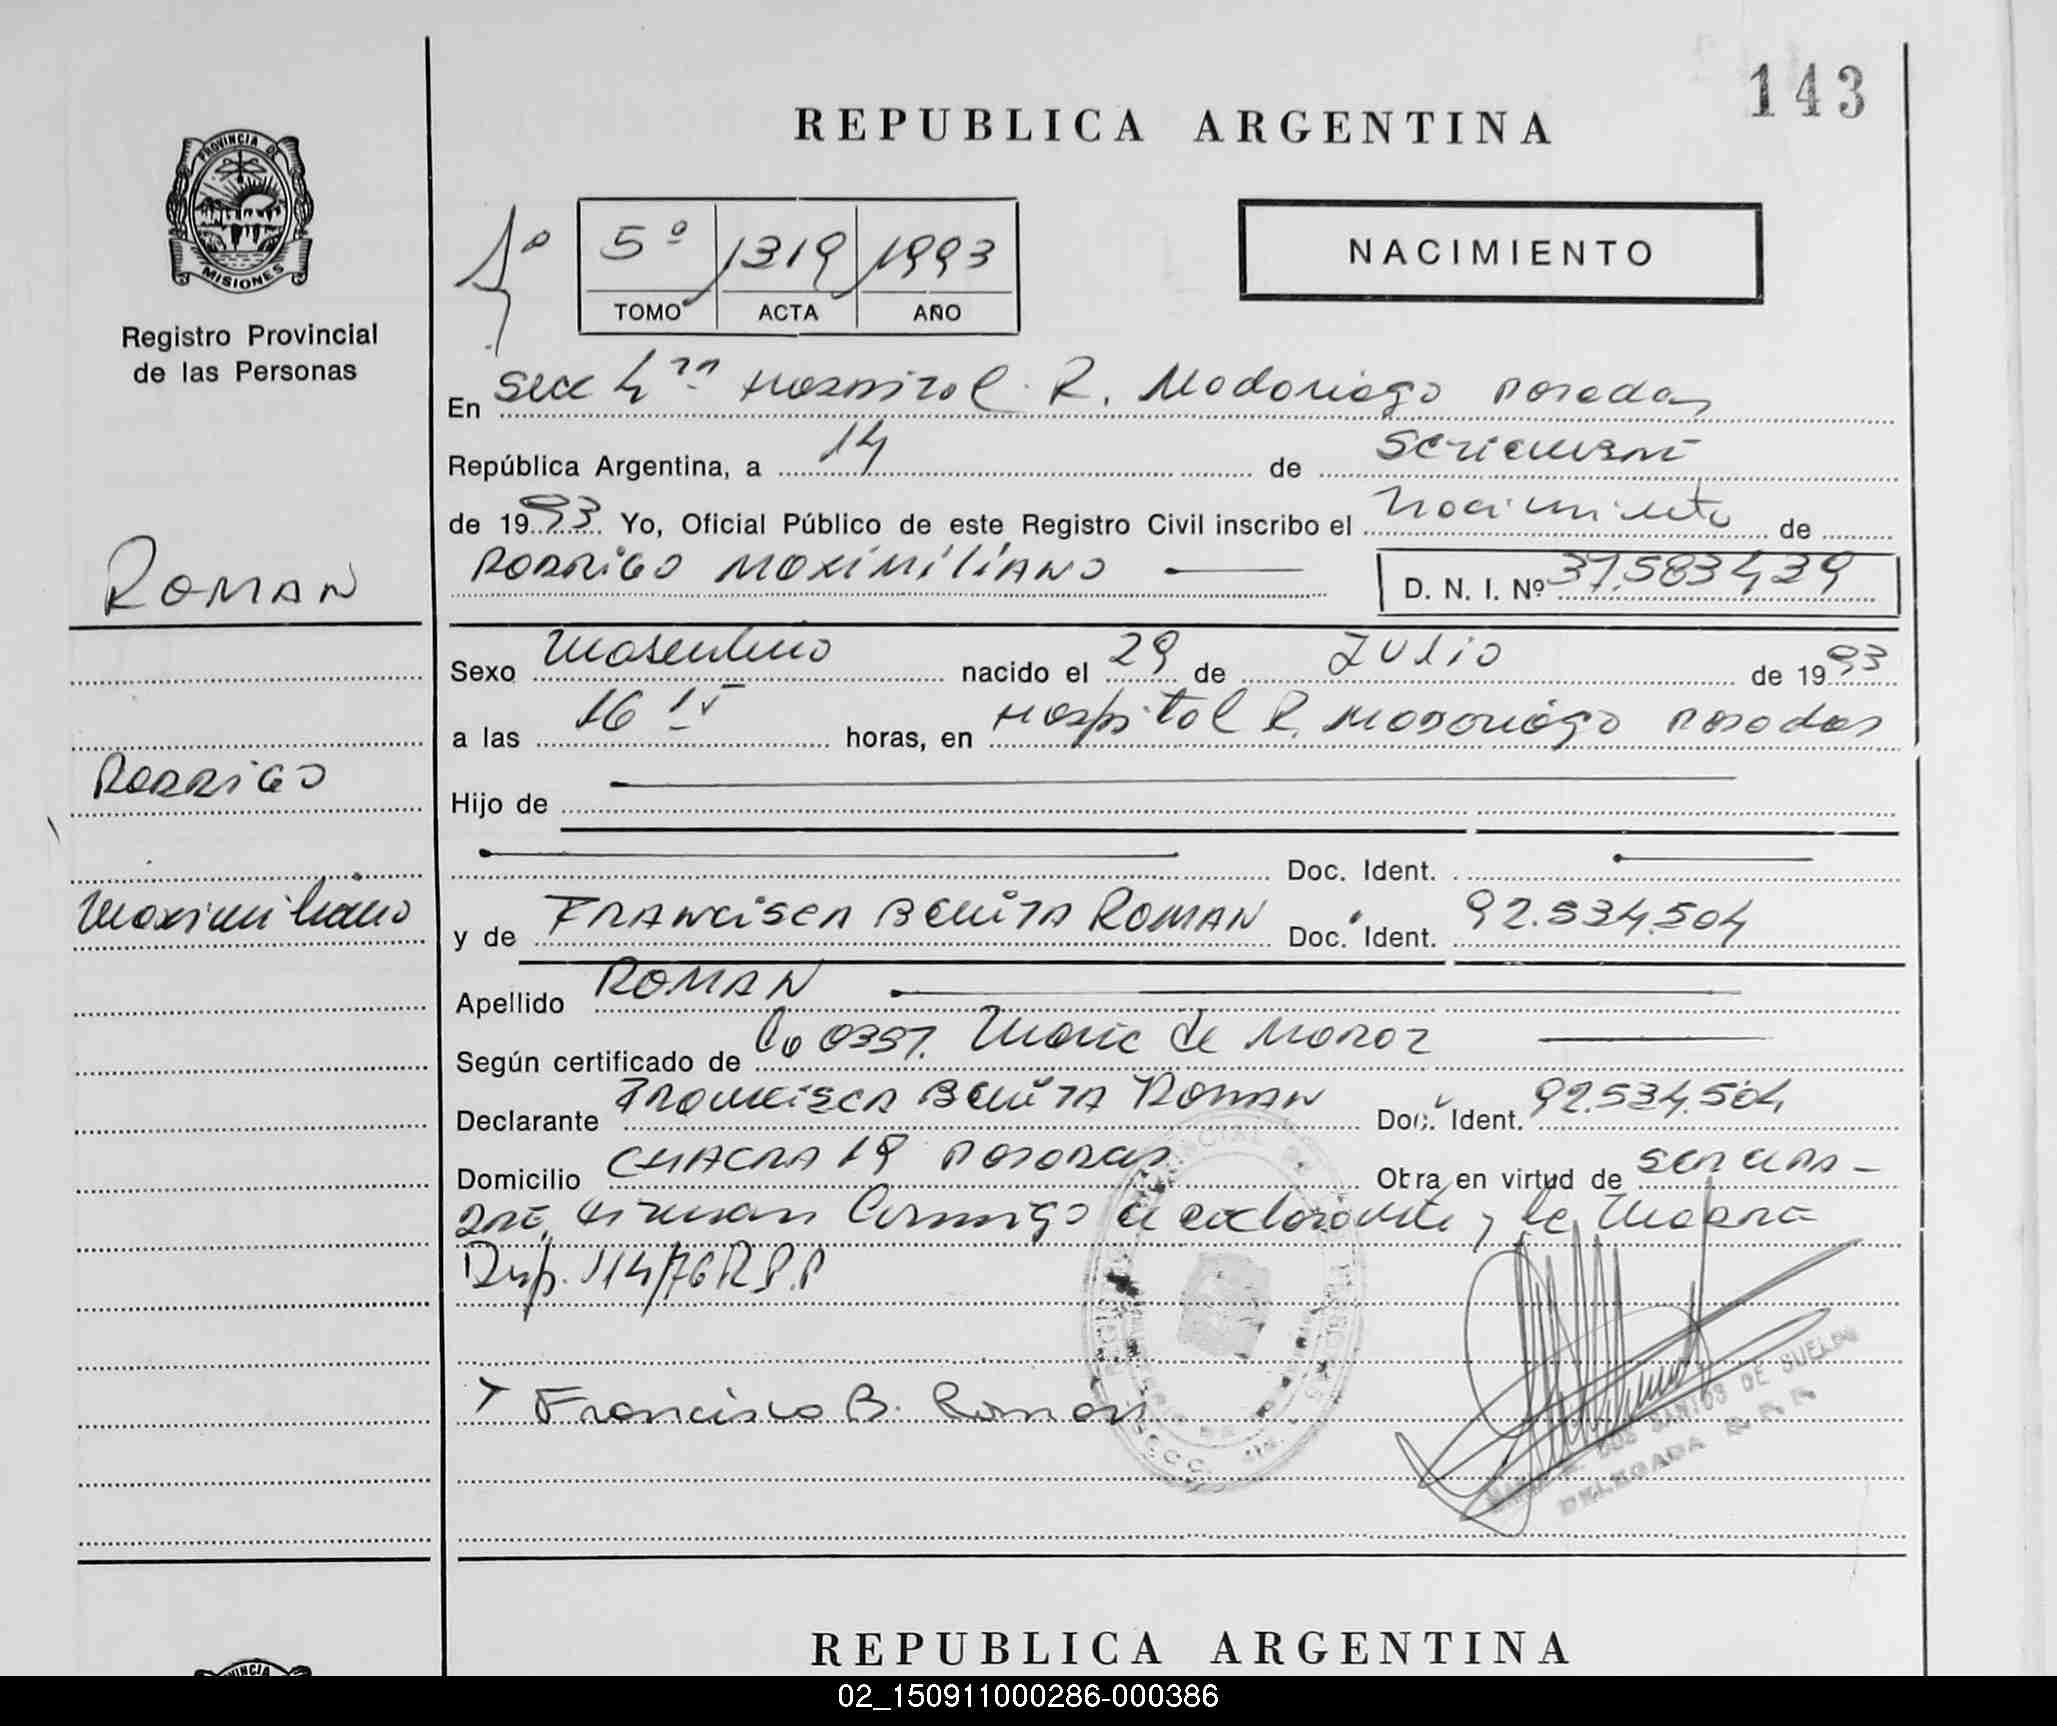 143
REPUBLICA ARGENTINA
PROVINCIA DE
MISIONES
Registro Provincial
de las Personas
5º 1319 1993
TOMO ACTA AÑO
NACIMIENTO
En Secc 4ta Hospital R. Madariaga Posadas
República Argentina, a 14 de Setiembre
de 1993 Yo, Oficial Público de este Registro Civil inscribo el Nacimiento de
ROMAN
RODRIGO MAXIMILIANO
D. N. I. Nº 37.583.439
Sexo Masculino nacido el 29 de JULIO de 1993
a las 16 15 horas, en Hospital R. Madariaga Posadas
RODRIGO
Hijo de
Doc. Ident.
Maximiliano
y de FRANCISCA BENITA ROMAN Doc. Ident. 92.534.504
Apellido ROMAN
Según certificado de Co 0357. Marie de
Declarante FRANCISCA BENITA ROMAN Doc. Ident. 92.534.504
Domicilio CHACRA 19 POSADAS Obra en virtud de ser la Ma-
dre, firman Conmigo el declarante y la Madre
Disp. 114/76 R.P.P
Francisca B. Roman
DOS SANTOS DE SUELDO
DELEGADA R.P.P.
REPUBLICA ARGENTINA
02_150911000286-000386